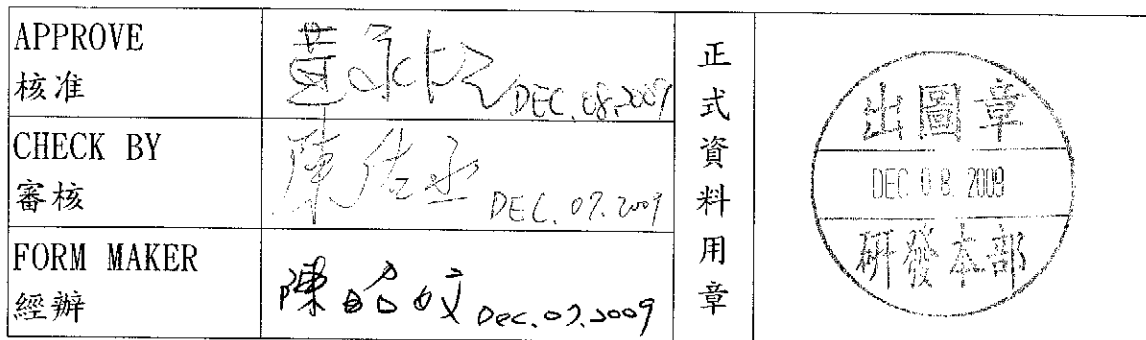 APPROVE
核准
DEC. 08. 2009
CHECK BY
審核
陳佐丞 DEC. 07. 2009
FORM MAKER
經辦
陳 Dec. 07. 2009
正式資料用章
出圖章
DEC 08. 2009
研發本部